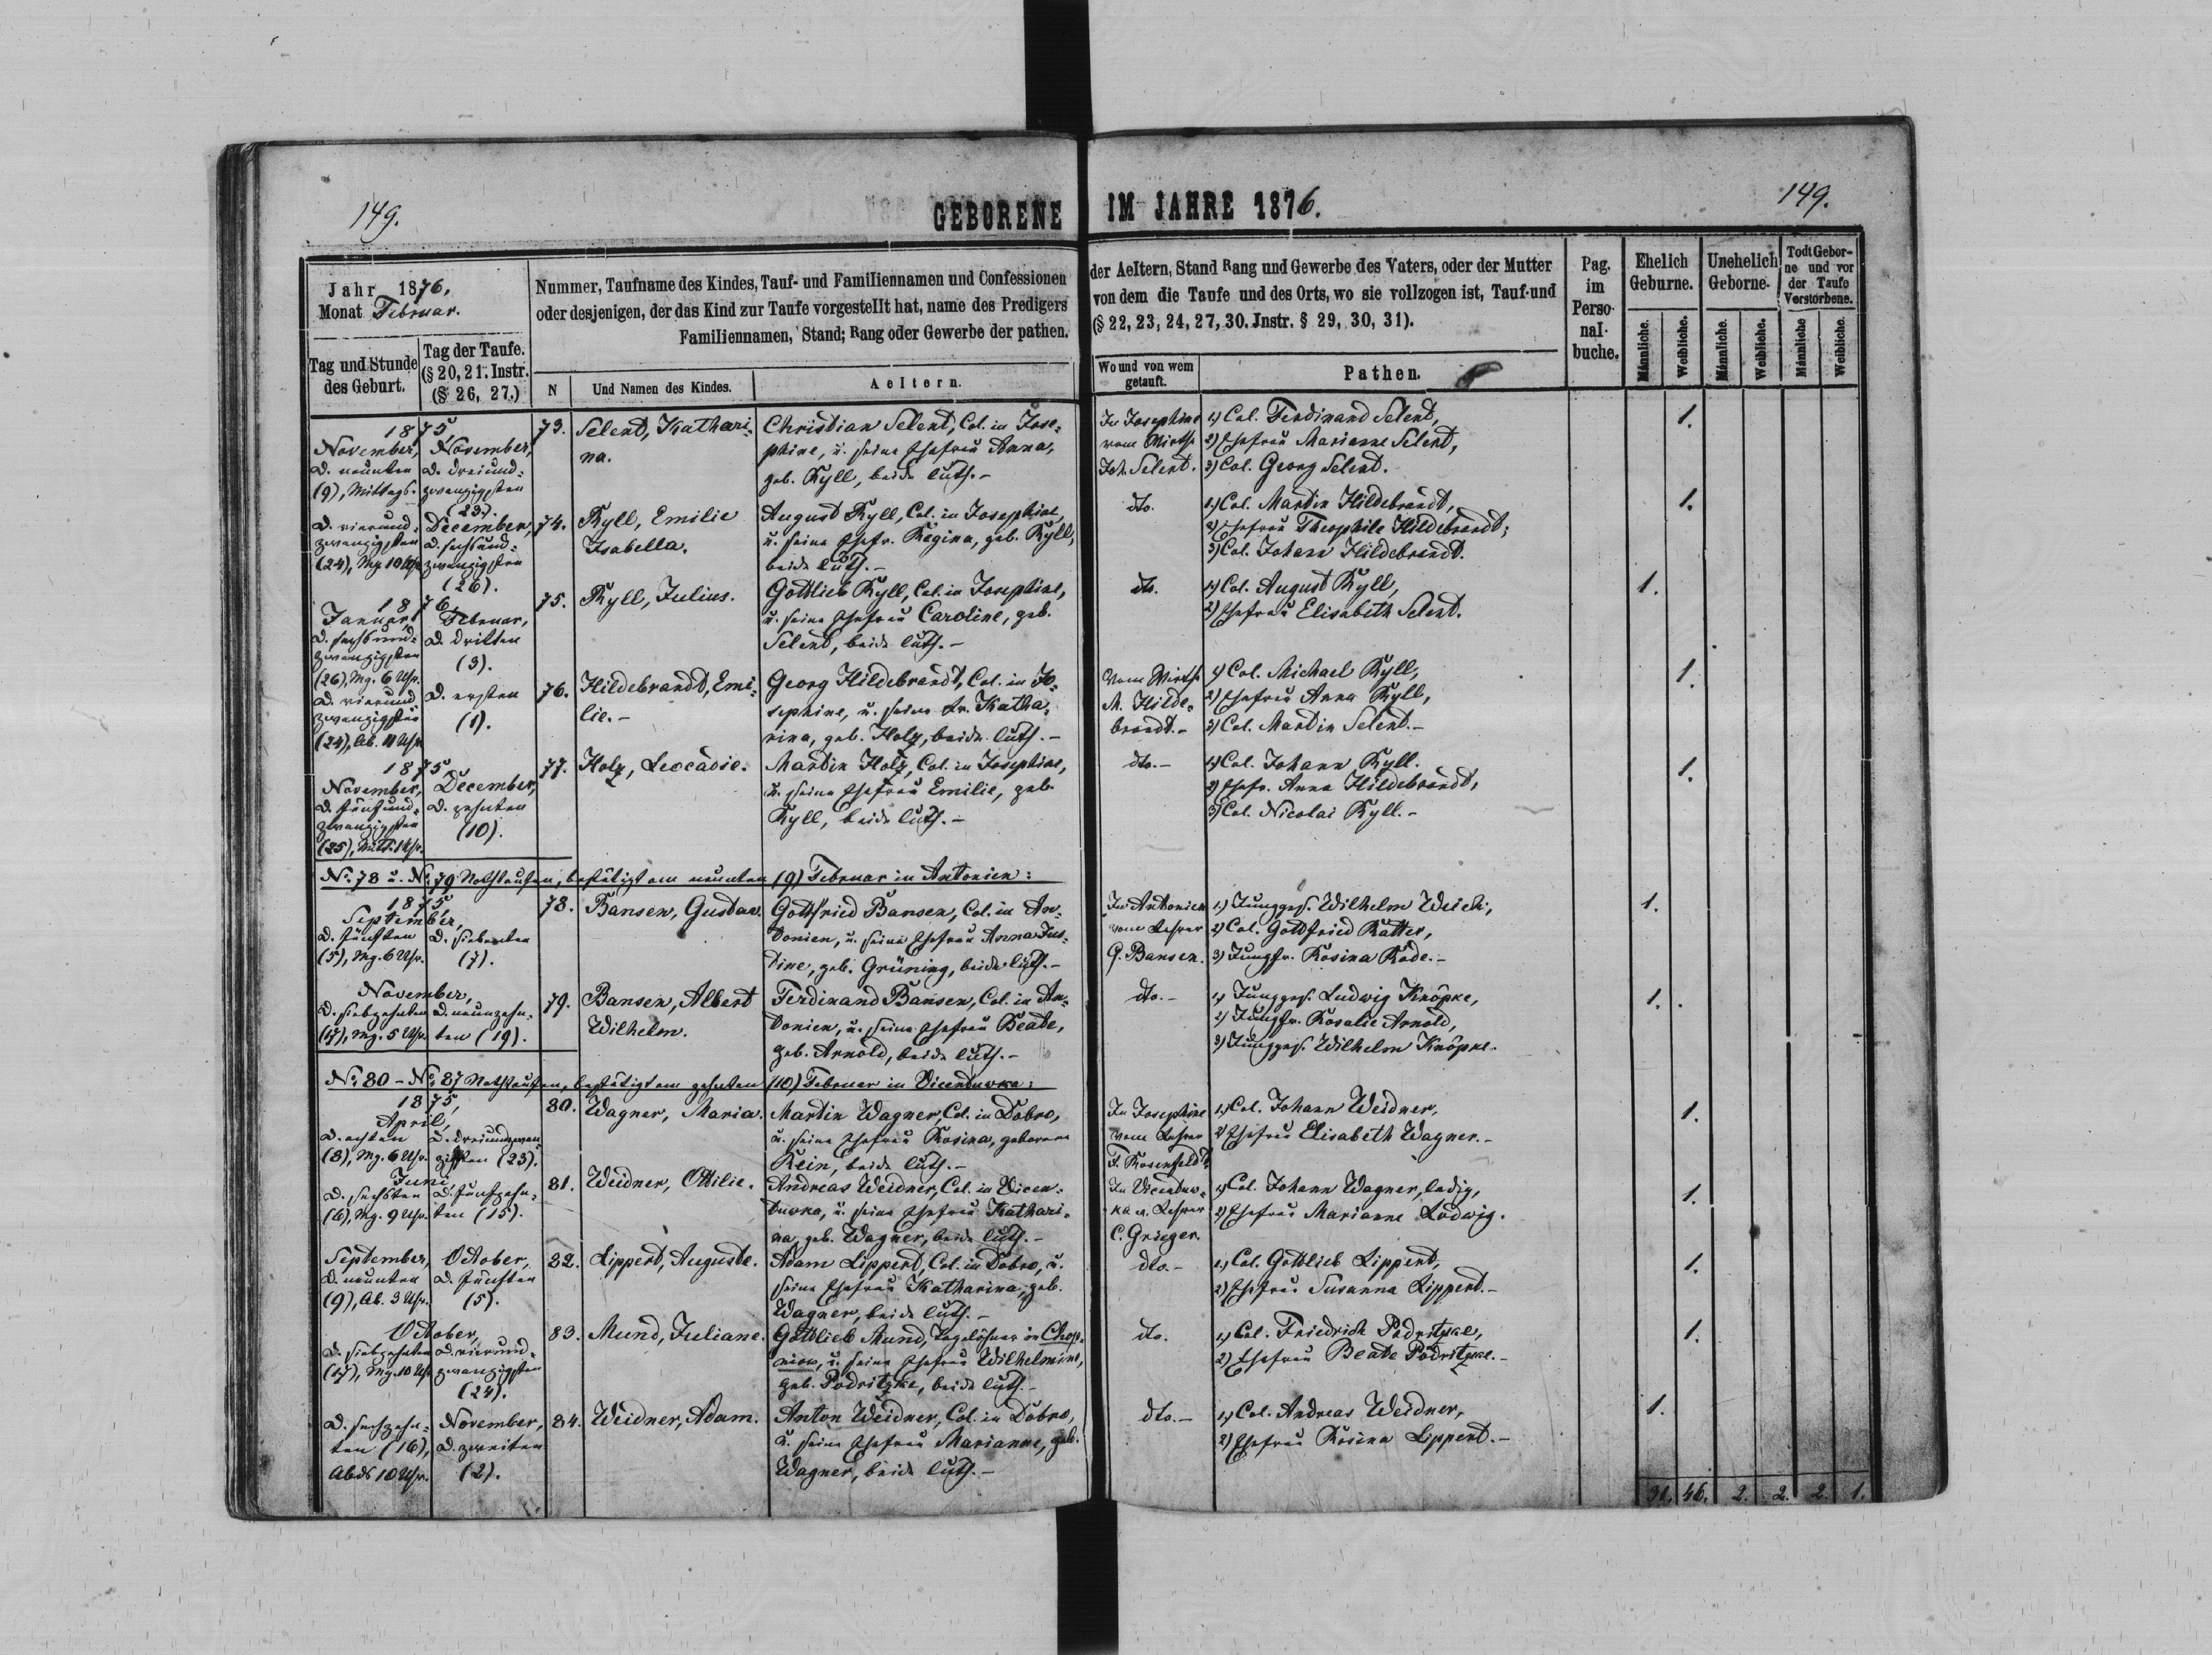 149.
GEBORENE IM JAHRE 1876.
149.
Jahr 1876,
Monat Februar.
Tag und Stunde
des Geburt.
Tag der Taufe.
(§ 20, 21. Instr.
(§ 26, 27.)
Nummer, Taufname des Kindes, Tauf- und Familiennamen und Confessionen
oder desjenigen, der das Kind zur Taufe vorgestellt hat, name des Predigers
Familiennamen, Stand; Rang oder Gewerbe der pathen.
N
Und Namen des Kindes.
Aeltern.
der Aeltern, Stand Rang und Gewerbe des Vaters, oder der Mutter
von dem die Taufe und des Orts, wo sie vollzogen ist, Tauf-und
(§ 22, 23, 24, 27, 30. Jnstr. § 29, 30, 31).
Wo und von wem
getauft.
Pathen.
Pag.
im
Perso-
nal-
buche.
Ehelich
Geburne.
Unehelich
Geborne.
Todt Gebor-
ne und vor
der Taufe
Verstorbene.
Männliche.
Weibliche.
Männliche.
Weibliche.
Männliche
Weibliche.
1875
November,
d. neunten
(9), Mittags.
November,
d. dreiund-
zwanzigsten
(23).
73.
Selent, Kathari-
na.
Christian Selent, Col. in Jose-
phine, u. seine Ehefrau Anna,
geb. Ryll, beide luth.-
In Josephine
vom Wirth
Joh. Selent.
1) Col. Ferdinand Selent,
2) Ehefrau Marianne Selent,
3) Col. Georg Selent.
1.
d. vierund-
zwanzigsten
(24), Mg. 10 Uhr
December,
d. sechsund-
zwanzigsten
(26).
74.
Ryll, Emilie
Isabella.
August Ryll, Col. in Josephine,
u. seine Ehefr. Regina, geb. Ryll,
beide luth.-
dto.
1) Col. Martin Hildebrandt,
2) Ehefrau Theophile Hildebrandt;
3) Col. Johann Hildebrandt.
1.
1876,
Januar,
d. sechsund-
zwanzigsten
(26), Mg. 6 Uhr.
Februar,
d. dritten
(3).
75.
Ryll, Julius.
Gottlieb Ryll, Col. in Josephine,
u. seine Ehefrau Caroline, geb.
Selent, beide luth.-
dto.
1) Col. August Ryll,
2) Ehefrau Elisabeth Selent.
1.
d. vierund-
zwanzigsten
(24), Ab. 11 Uhr
d. ersten
(1).
76.
Hildebrandt, Emi-
lie.-
Georg Hildebrandt, Col. in Jo-
sephine, u. seine Fr. Katha-
rina, geb. Holz, beide luth.-
vom Wirth
M. Hilde-
brandt.-
1) Col. Michael Ryll,
2) Ehefrau Anna Ryll,
3) Col. Martin Selent.-
1.
1875
November,
d. fünfund-
zwanzigsten
(25), Mitt. 1 Uhr.
December,
d. zehnten
(10).
77.
Holz, Leocadie.
Martin Holz, Col. in Josephine,
u. seine Ehefrau Emilie, geb.
Ryll, beide luth.-
dto.-
1) Col. Johann Ryll.
2) Ehefr. Anna Hildebrandt,
3) Col. Nicolai Ryll.-
1.
No. 78 u. No. 79 Nothtaufen, bestätigt am neunten (9) Februar in Antonien:
1875
September,
d. fünften
(5), Mg. 6 Uhr.
d. siebenten
(7).
78.
Bansen, Gustav.
Gottfried Bansen, Col. in An-
tonien, u. seine Ehefrau Anna Jus-
tine, geb. Grüning, beide luth.-
In Antonien
vom Lehrer
G. Bansen.
1) Junggs. Wilhelm Weich,
2) Col. Gottfried Ratter,
3) Jungfr. Rosina Rode.-
1.
November,
d. siebzehnten
(17), Mg. 5 Uhr.
d. neunzehn-
ten (19).
79.
Bansen, Albert
Wilhelm.
Ferdinand Bansen, Col. in An-
tonien, u. seine Ehefrau Beate,
geb. Arnold, beide luth.-
dto.-
1) Junggs. Ludwig Knöpke,
2) Jungfr. Rosalie Arnold,
3) Junggs. Wilhelm Knöpke.
1.
No. 80 - No. 87 Nothtaufen, bestätigt am zehnten (10) Februar in Vicentuwka:
1875,
April,
d. achten
(8), Mg. 6 Uhr.
d. dreiundzwan-
zigsten (23).
80.
Wagner, Maria.
Martin Wagner, Col. in Dobro,
u. seine Ehefrau Rosina, geborene
Rein, beide luth.-
In Josephine
vom Lehrer
F. Rosenfeldt.
1) Col. Johann Weidner,
2) Ehefrau Elisabeth Wagner.-
1.
Juni,
d. sechsten
(6), Mg. 9 Uhr.
d. fünfzehn-
ten (15).
81.
Weidner, Ottilie.
Andreas Weidner, Col. in Vicen-
tuwka, u. seine Ehefrau Kathari-
na, geb. Wagner, beide luth.-
In Vicentuw-
ka v. Lehrer
C. Grieger.
1) Col. Johann Wagner, ledig,
2) Ehefrau Marianne Ludwig.
1.
September,
d. neunten
(9), Ab. 3 Uhr.
October,
d. fünften
(5).
82.
Lippert, Auguste.
Adam Lippert, Col. in Dobro, u.
seine Ehefrau Katharina, geb.
Wagner, beide luth.-
dto.-
1) Col. Gottlieb Lippert,
2) Ehefrau Susanna Lippert.-
1.
October,
d. siebzehnten
(17), Mg. 10 Uhr
d. vierund-
zwanzigsten
(24).
83.
Mund, Juliane.
Gottlieb Mund, Tagelöhner in
u. seine Ehefrau Wilhelmine,
geb. Podritzke, beide luth.-
dto.
1) Col. Friedrich Podritzke,
2) Ehefrau Beate Podritzke.-
1.
d. sechzehn-
ten (16),
Abds 10 Uhr.
November,
d. zweiten
(2).
84.
Weidner, Adam.
Anton Weidner, Col. in Dobro,
u. seine Ehefrau Marianne, geb.
Wagner, beide luth.-
dto.-
1) Col. Andreas Weidner,
2) Ehefrau Rosina Lippert.-
1.
31. 46. 2. 2. 2. 1.